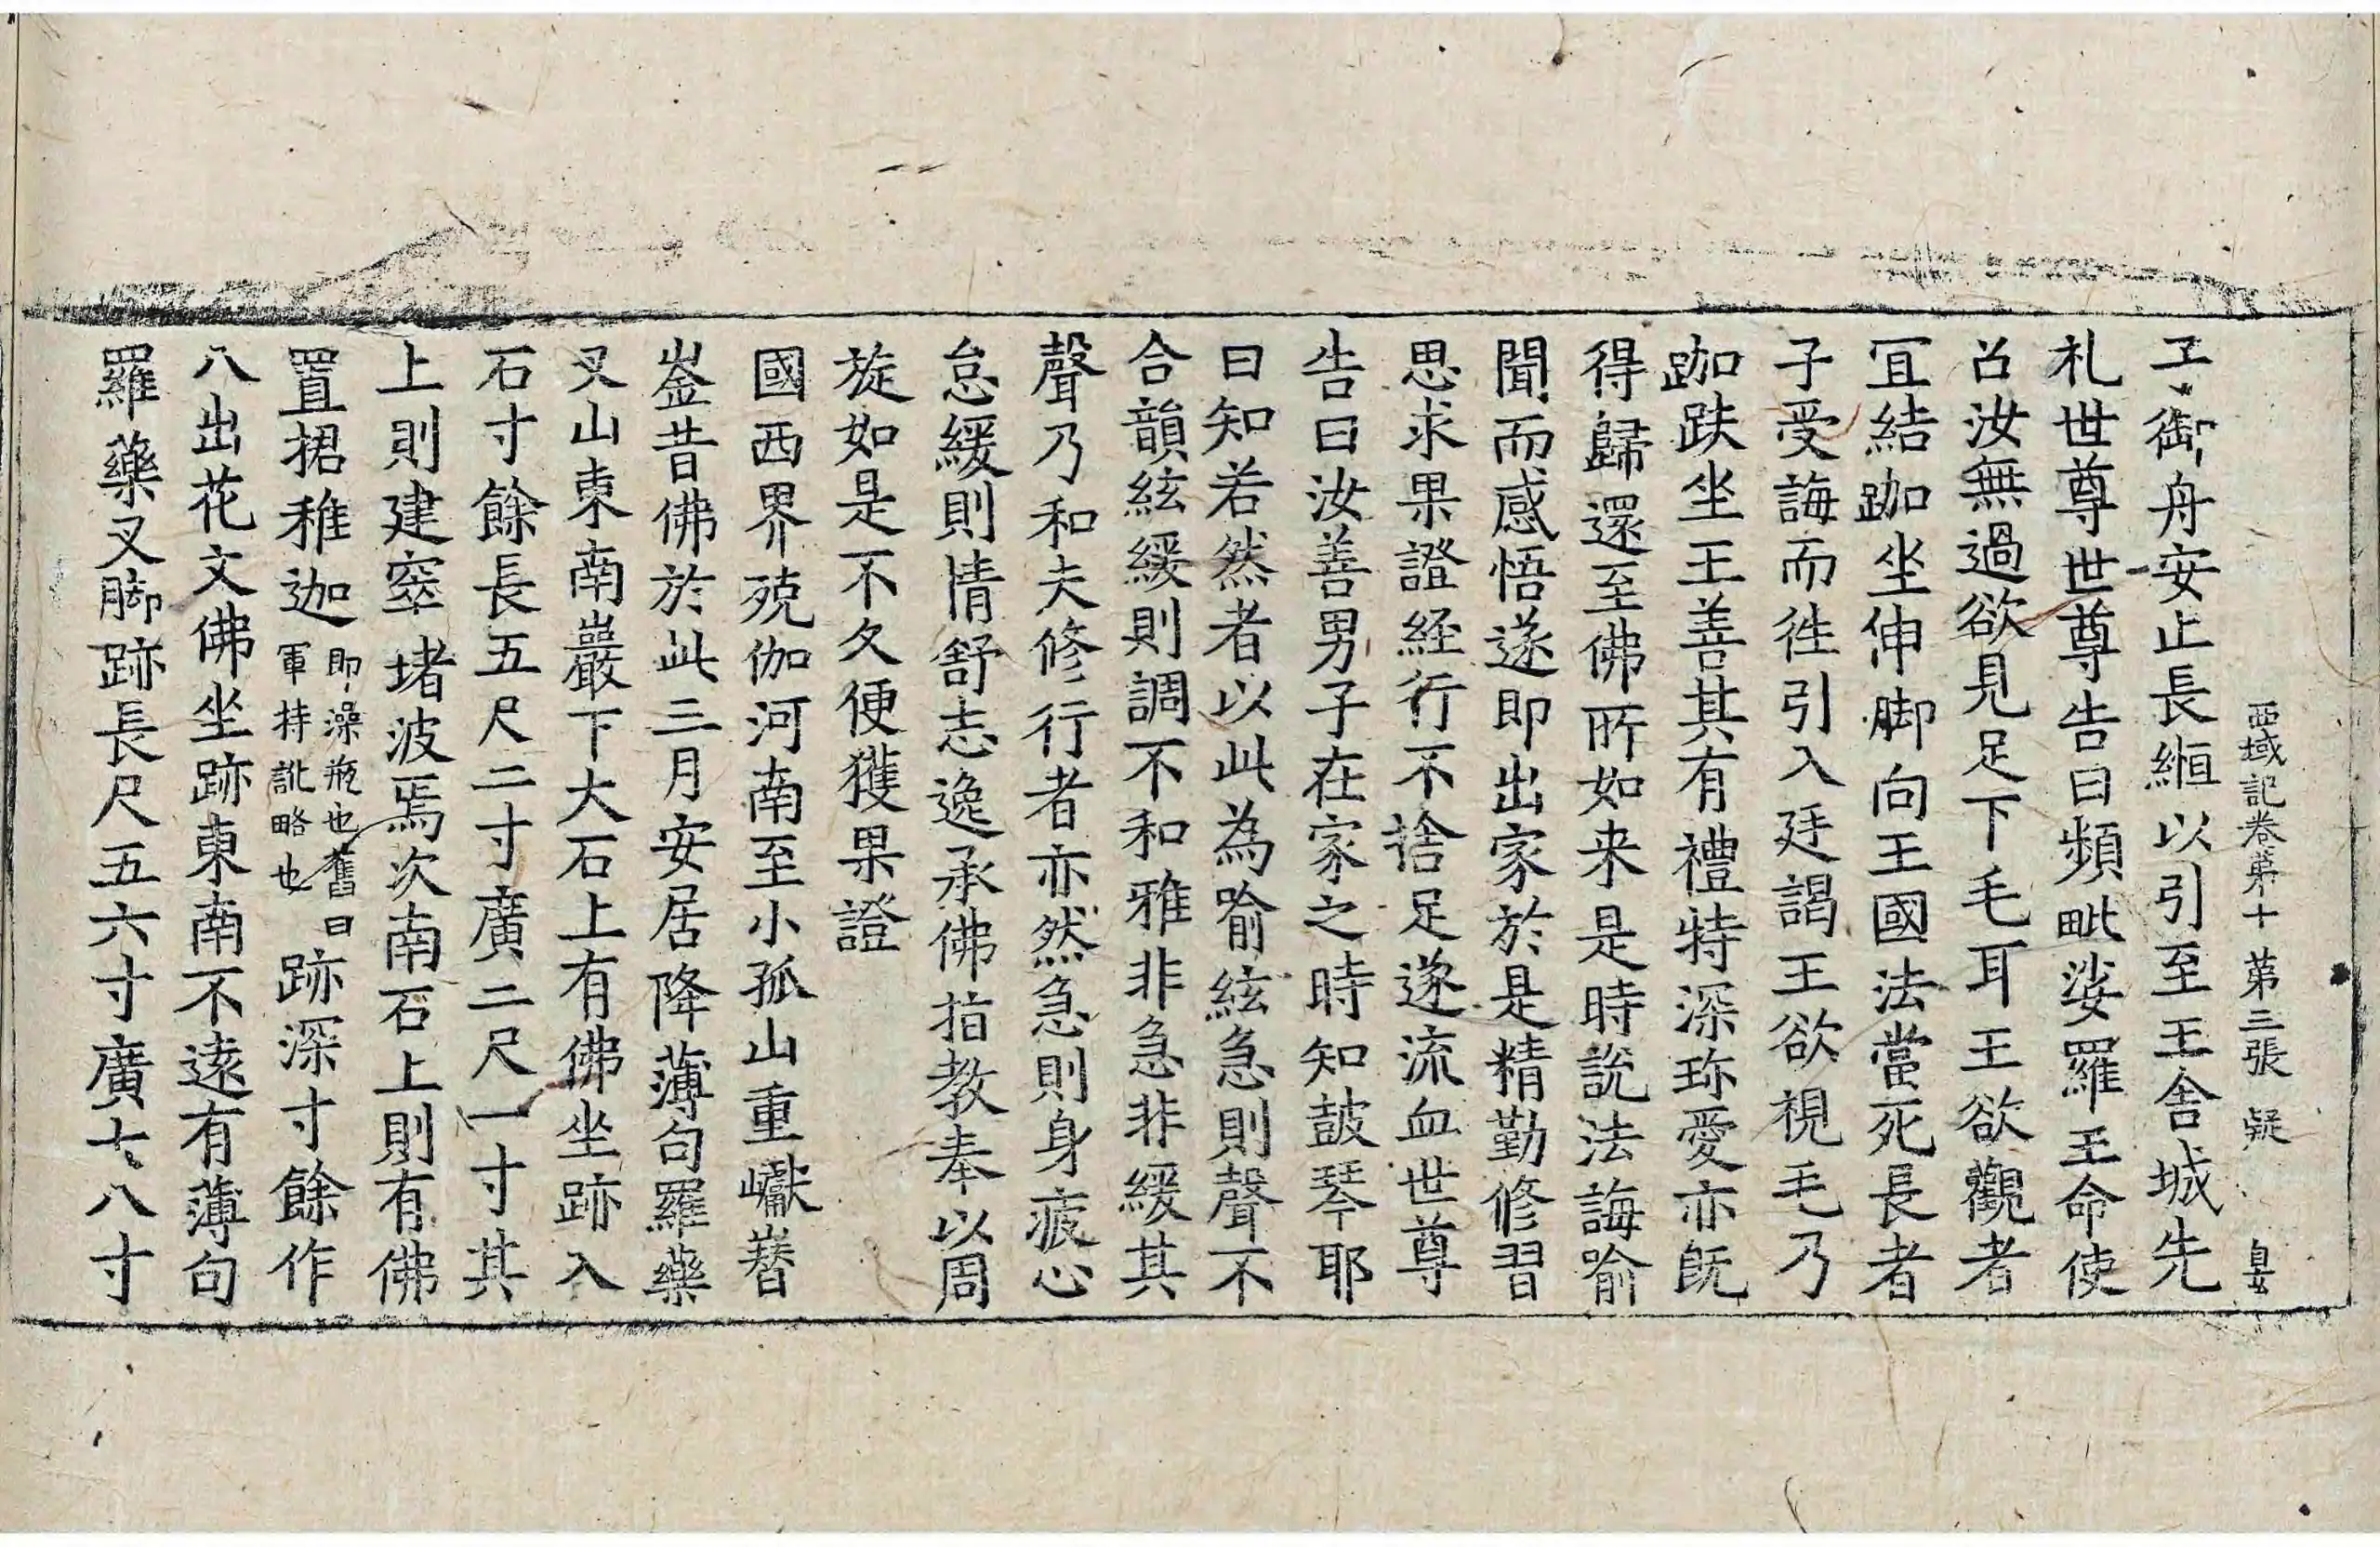 西域記卷第十 第三張 疑
子御舟安止長緪以引至王舍城先
礼世尊世尊告曰頻毗娑羅王命使
召汝無過欲見足下毛耳王欲觀者
冝結跏坐伸脚向王國法當死長者
子受誨而徃引入廷謁王欲視毛乃
跏趺坐王善其有禮特深珎愛亦既
得歸還至佛所如来是時說法誨喻
聞而感悟遂即出家於是精勤修習
思求果證經行不捨足遂流血世尊
告曰汝善男子在家之時知鼓琴耶
曰知若然者以此為喻絃急則聲不
合韻絃緩則調不和雅非急非緩其
聲乃和夫修行者亦然急則身疲心
怠緩則情舒志逸承佛指教奉以周
旋如是不久便獲果證
國西界殑伽河南至小孤山重巘㟥
崟昔佛於此三月安居降薄句羅藥
叉山東南巖下大石上有佛坐跡入
石寸餘長五尺二寸廣二尺一寸其
上則建窣堵波焉次南石上則有佛
置捃稚迦即澡瓶也舊曰軍持訛略也跡深寸餘作
八出花文佛坐跡東南不遠有薄句
羅藥叉脚跡長尺五六寸廣七八寸